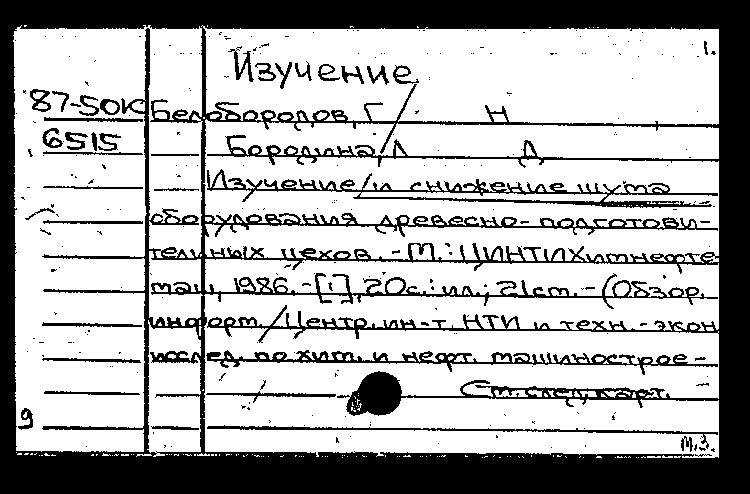 1.
Изучение
87-50К Белобородов, Г Н
6515 Бородина, Л Д
Изучение / и снижение шума
оборудования древесно-подготови-
тельных цехов. - М.: ЦИНТИХимнефте-
маш, 1986. - [1], 20с.: ил.; 21см. - (Обзор.
информ. / Центр. ин-т. НТИ и техн.-экон
исслед. по хим. и нефт. машинострое-
См. след. карт.
9
М.З.